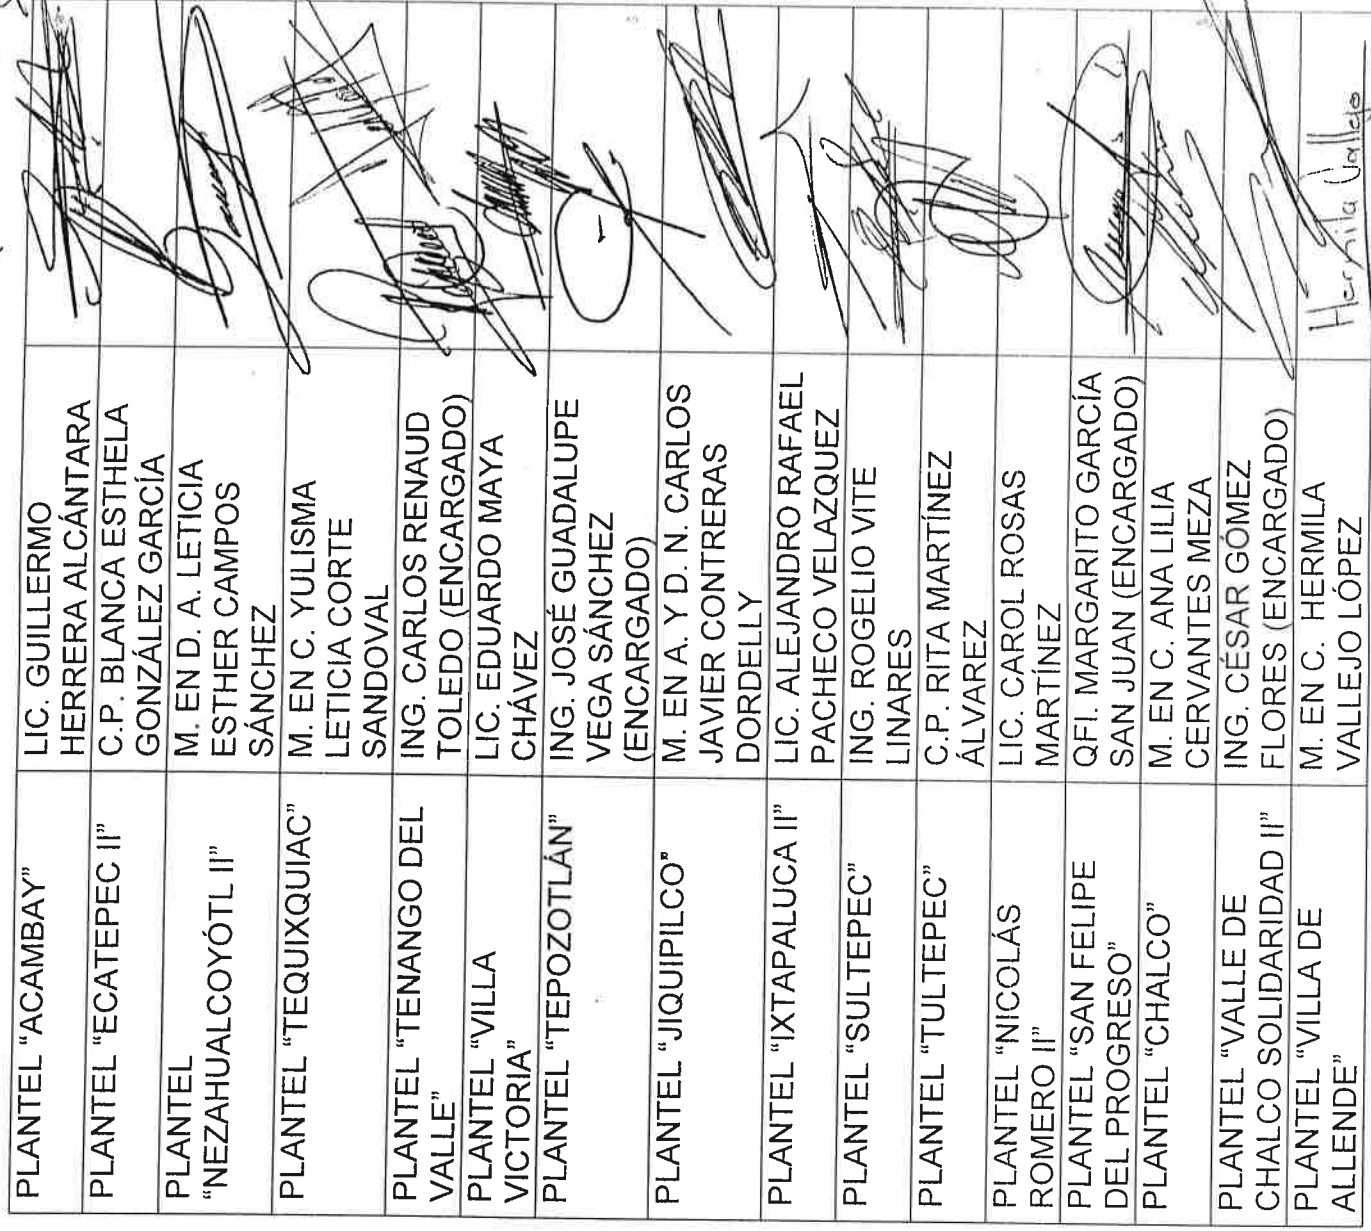 PLANTEL “ACAMBAY”
LIC. GUILLERMO
HERRERA ALCÁNTARA
PLANTEL “ECATEPEC II”
C.P. BLANCA ESTHELA
GONZÁLEZ GARCÍA
PLANTEL
“NEZAHUALCOYÓTL II”
M. EN D. A. LETICIA
ESTHER CAMPOS
SÁNCHEZ
PLANTEL “TEQUIXQUIAC”
M. EN C. YULISMA
LETICIA CORTE
SANDOVAL
PLANTEL “TENANGO DEL
VALLE”
ING. CARLOS RENAUD
TOLEDO (ENCARGADO)
PLANTEL “VILLA
VICTORIA”
LIC. EDUARDO MAYA
CHÁVEZ
PLANTEL “TEPOZOTLÁN”
ING. JOSÉ GUADALUPE
VEGA SÁNCHEZ
(ENCARGADO)
PLANTEL “JIQUIPILCO”
M. EN A. Y D. N. CARLOS
JAVIER CONTRERAS
DORDELLY
PLANTEL “IXTAPALUCA II”
LIC. ALEJANDRO RAFAEL
PACHECO VELAZQUEZ
PLANTEL “SULTEPEC”
ING. ROGELIO VITE
LINARES
PLANTEL “TULTEPEC”
C.P. RITA MARTÍNEZ
ÁLVAREZ
PLANTEL “NICOLÁS
ROMERO II”
LIC. CAROL ROSAS
MARTÍNEZ
PLANTEL “SAN FELIPE
DEL PROGRESO”
QFI. MARGARITO GARCÍA
SAN JUAN (ENCARGADO)
PLANTEL “CHALCO”
M. EN C. ANA LILIA
CERVANTES MEZA
PLANTEL “VALLE DE
CHALCO SOLIDARIDAD II”
ING. CÉSAR GÓMEZ
FLORES (ENCARGADO)
PLANTEL “VILLA DE
ALLENDE”
M. EN C. HERMILA
VALLEJO LÓPEZ
Hermila Vallejo